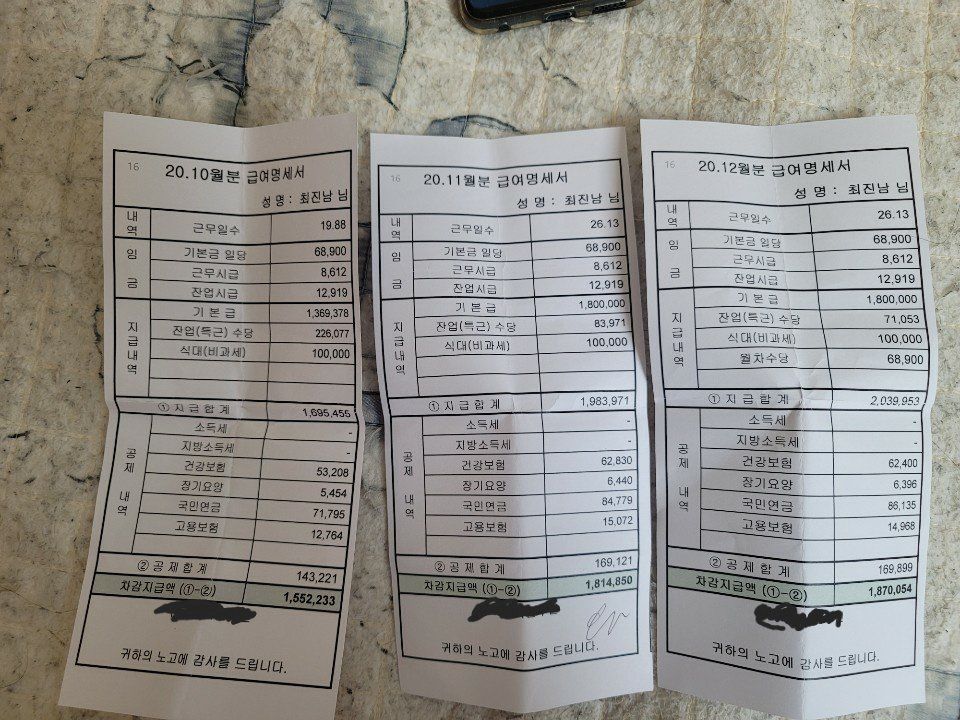 16
20.10월분 급여명세서
성 명 : 최진남 님
내역 근무일수 19.88
임금 기본금 일당 68,900
근무시급 8,612
잔업시급 12,919
지급내역 기 본 급 1,369,378
잔업(특근) 수당 226,077
식대(비과세) 100,000
① 지 급 합 계 1,695,455
공제내역 소득세 -
지방소득세 -
건강보험 53,208
장기요양 5,454
국민연금 71,795
고용보험 12,764
② 공 제 합 계 143,221
차감지급액 (①-②) 1,552,233
귀하의 노고에 감사를 드립니다.
16
20.11월분 급여명세서
성 명 : 최진남 님
내역 근무일수 26.13
임금 기본금 일당 68,900
근무시급 8,612
잔업시급 12,919
지급내역 기 본 급 1,800,000
잔업(특근) 수당 83,971
식대(비과세) 100,000
① 지 급 합 계 1,983,971
공제내역 소득세 -
지방소득세 -
건강보험 62,830
장기요양 6,440
국민연금 84,779
고용보험 15,072
② 공 제 합 계 169,121
차감지급액 (①-②) 1,814,850
귀하의 노고에 감사를 드립니다.
16
20.12월분 급여명세서
성 명 : 최진남 님
내역 근무일수 26.13
임금 기본금 일당 68,900
근무시급 8,612
잔업시급 12,919
지급내역 기 본 급 1,800,000
잔업(특근) 수당 71,053
식대(비과세) 100,000
월차수당 68,900
① 지 급 합 계 2,039,953
공제내역 소득세 -
지방소득세 -
건강보험 62,400
장기요양 6,396
국민연금 86,135
고용보험 14,968
② 공 제 합 계 169,899
차감지급액 (①-②) 1,870,054
귀하의 노고에 감사를 드립니다.